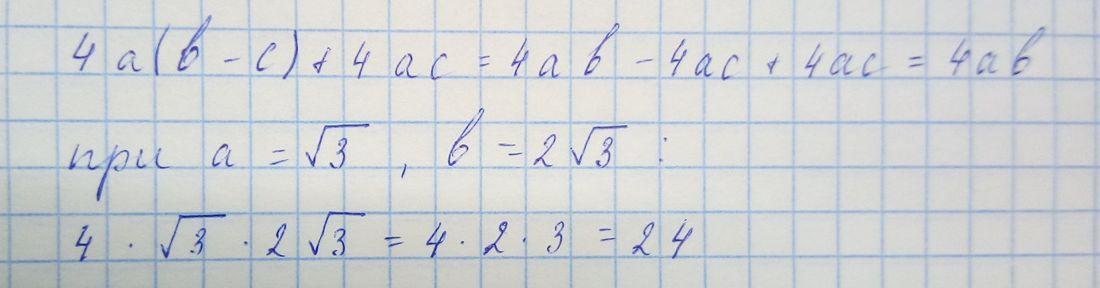 4a(b - c) + 4ac = 4ab - 4ac + 4ac = 4ab
при a = √3 , b = 2√3 :
4 · √3 · 2√3 = 4 · 2 · 3 = 24